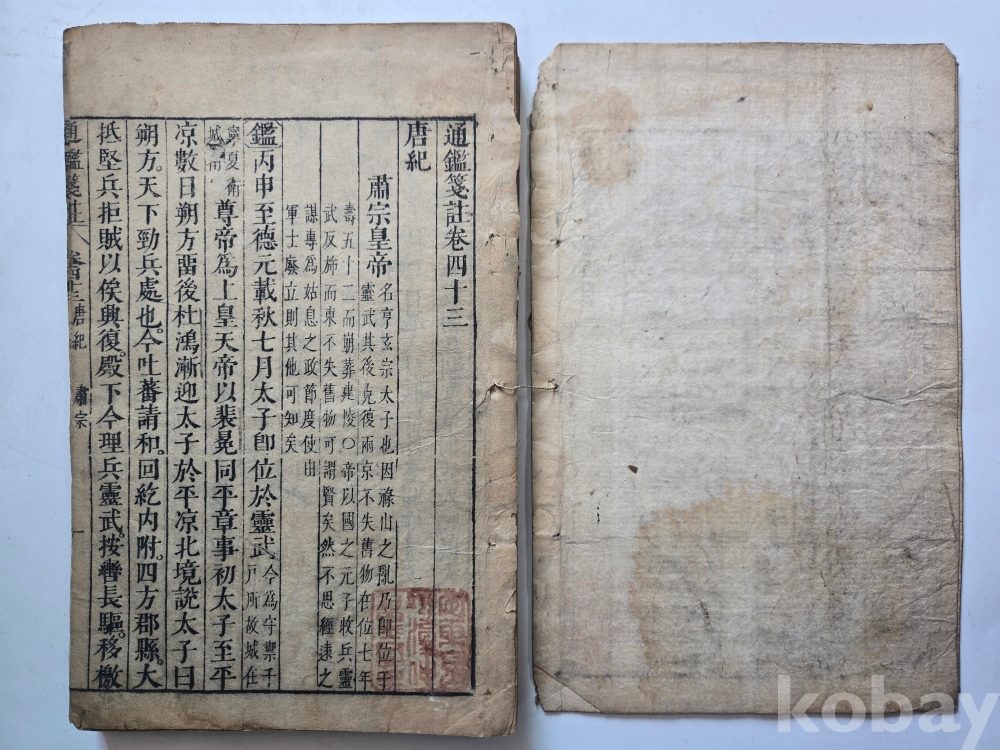 通鑑箋註卷四十三
唐紀
肅宗皇帝 名亨玄宗太子也因祿山之亂乃卽位于
靈武其後克復兩京不失舊物在位七年
壽五十二而崩葬建陵○帝以國之元子收兵靈
武反旆而東不失舊物可謂賢矣然不思經遠之
謀專爲姑息之政節度使由
軍士廢立則其他可知矣
鑑丙申至德元載秋七月太子卽位於靈武 今爲守禦千
戶所故城在
寧夏衛
城南 尊帝爲上皇天帝以裴冕同平章事初太子至平
凉數日朔方畱後杜鴻漸迎太子於平凉北境說太子曰
朔方天下勁兵處也今吐蕃請和回紇内附四方郡縣大
抵堅兵拒賊以俟興復殿下今理兵靈武按轡長驅移檄
通鑑箋註 卷四十三 唐紀 肅宗 一
kobay